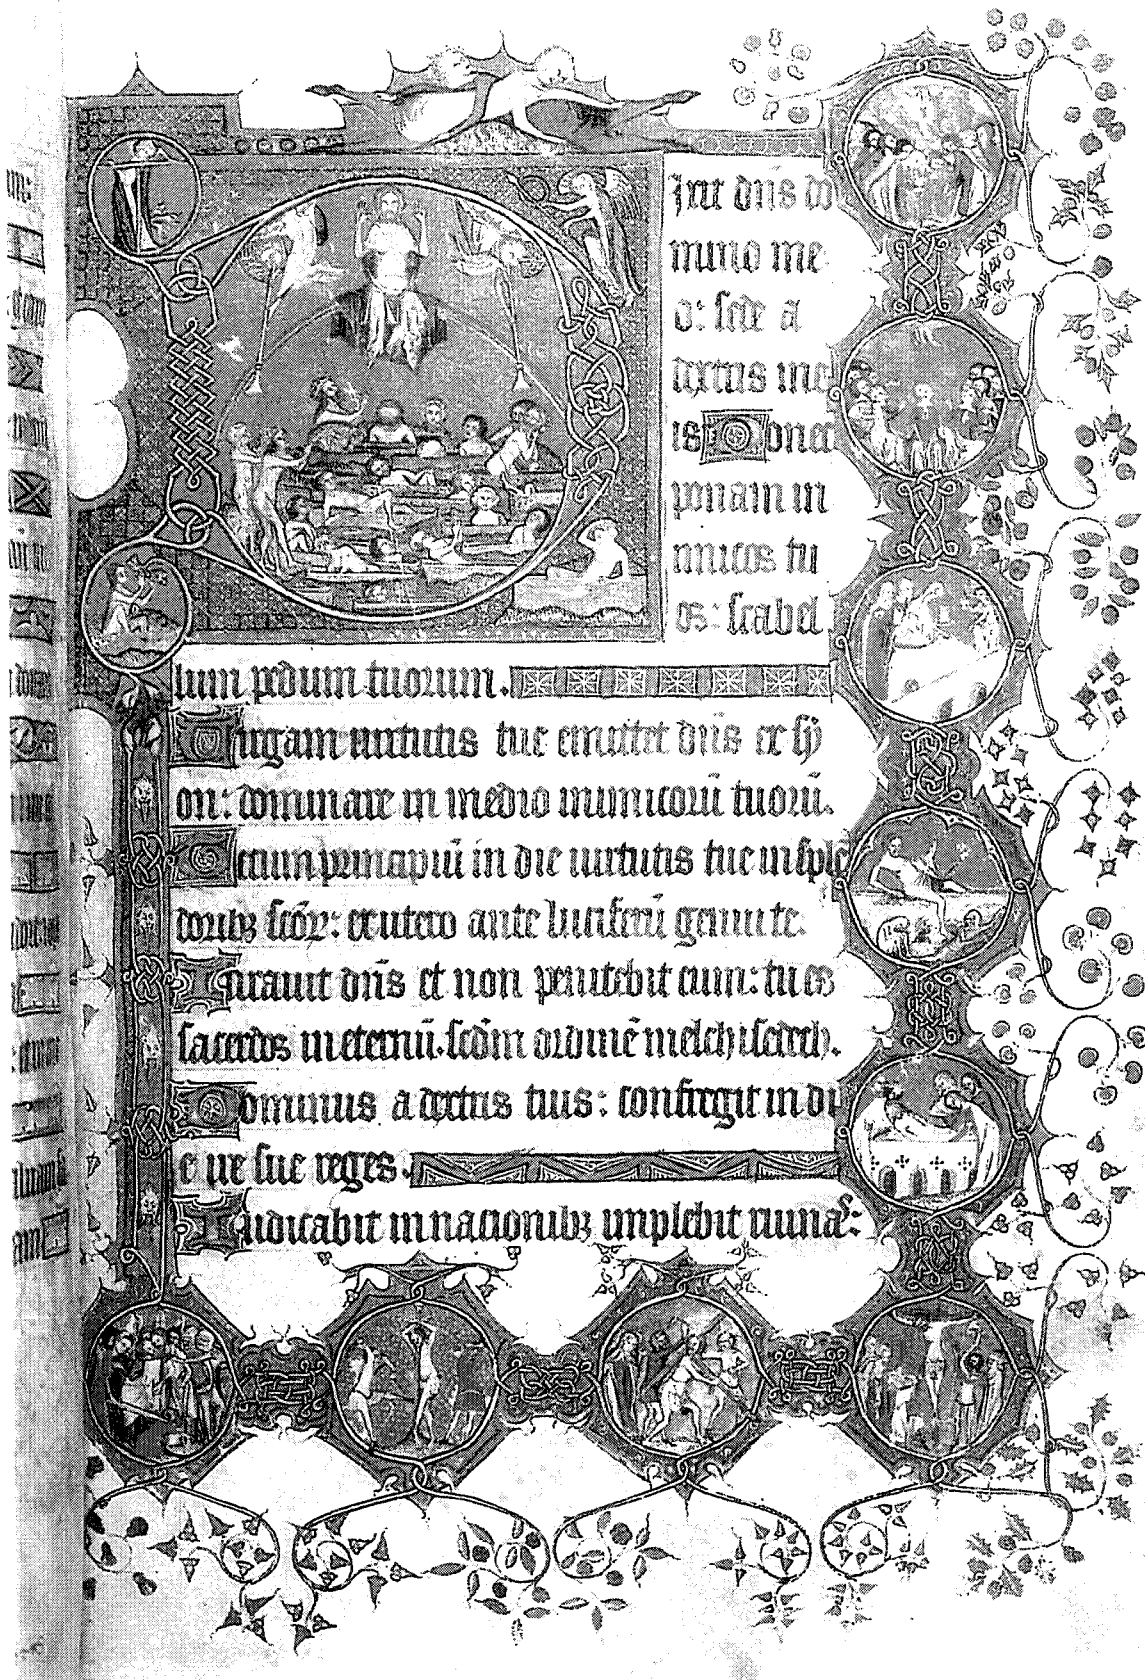 ixit dn̄s do
mino me
o: sede a
dextris me
is Donec
ponam in
imicos tu
os: scabel
lum pedum tuorum.
Uirgam uirtutis tue emittet dn̄s ex sy
on: dominare in medio inimicorū tuorū.
Tecum principiū in die uirtutis tue in splē
doribꝫ scōꝝ: ex utero ante luciferū genui te.
Iurauit dn̄s et non penitebit eum: tu es
sacerdos in eternū. scd̄m ordinē melchisedech.
Dominus a dextris tuis: confregit in di
e ire sue reges.
Iudicabit in nacionibꝫ implebit ruinas: